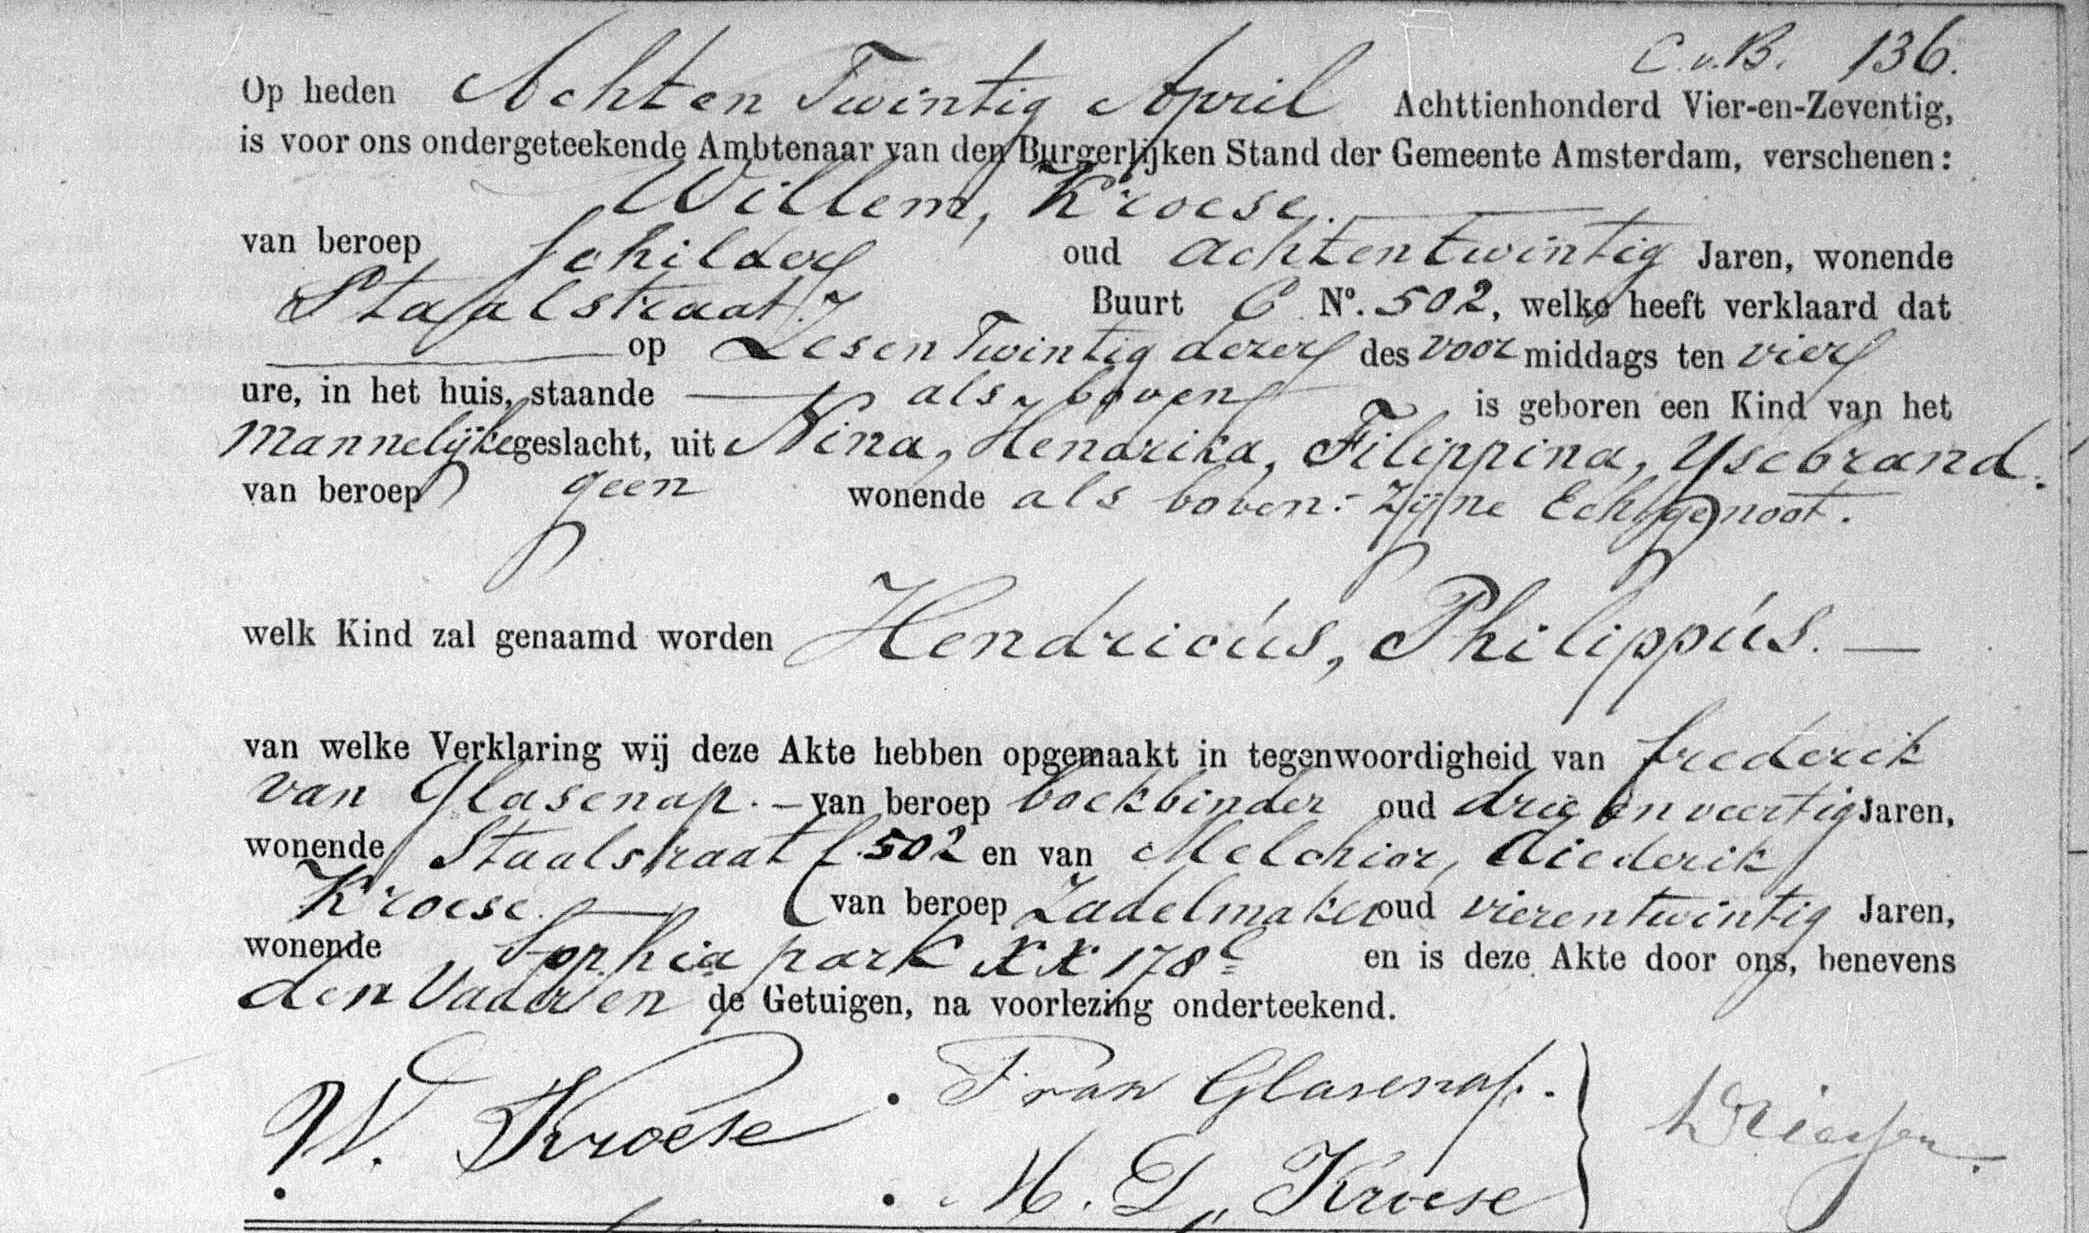 C.v.B. 136.
Op heden Acht en Twintig April Achttienhonderd Vier-en-Zeventig,
is voor ons ondergeteekende Ambtenaar van den Burgerlijken Stand der Gemeente Amsterdam, verschenen:
Willem, Kroese.
van beroep Schilder oud achtentwintig Jaren, wonende
Staalstraat 7 Buurt C No. 502, welke heeft verklaard dat
op Zesen Twintig dezer des voormiddags ten vier
ure, in het huis, staande als boven is geboren een Kind van het
Mannelijke geslacht, uit Nina, Hendrika, Filippina, Ysebrand.
van beroep geen wonende als boven.- Zijne Echtgenoot.
welk Kind zal genaamd worden Hendricús, Philippús. —
van welke Verklaring wij deze Akte hebben opgemaakt in tegenwoordigheid van frederik
van Glasenap. — van beroep boekbinder oud drie en veertig Jaren,
wonende Staalstraat C 502 en van Melchior, diederik
Kroese. van beroep Zadelmaker oud vierentwintig Jaren,
wonende Sophia park XX 178c en is deze Akte door ons, benevens
den Vader en de Getuigen, na voorlezing onderteekend.
W. Kroese . F van Glasenap.
. M. D, Kroese